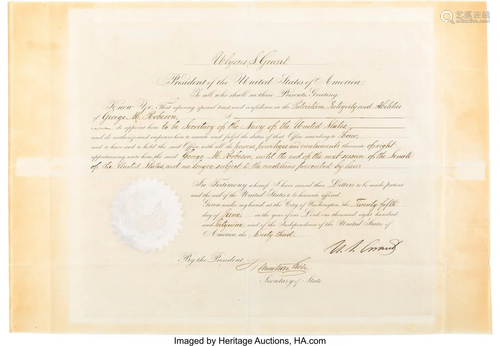 Ulysses S. Grant
President of the United States of America,
To all who shall see these Presents Greeting:
Know Ye, That reposing special trust and confidence in the Patriotism, Integrity and Abilities
of George M. Robeson, I
do appoint him to be Secretary of the Navy of the United States,
and do authorize and empower him to execute and fulfil the duties of that Office according to Law;
and to have and to hold the said Office with all the powers, privileges and emoluments thereunto of right
appertaining unto him the said George M. Robeson, until the end of the next session of the Senate
of the United States, and no longer; subject to the conditions prescribed by law.
In Testimony whereof I have caused these Letters to be made patent
and the Seal of the United States to be hereunto affixed.
Given under my hand, at the City of Washington, the Twenty fifth
day of June, in the year of our Lord one thousand eight hundred
and sixty nine, and of the Independence of the United States of
America, the Ninety third.
U. S. Grant
By the President
Hamilton Fish
Secretary of State.
Imaged by Heritage Auctions, HA.com